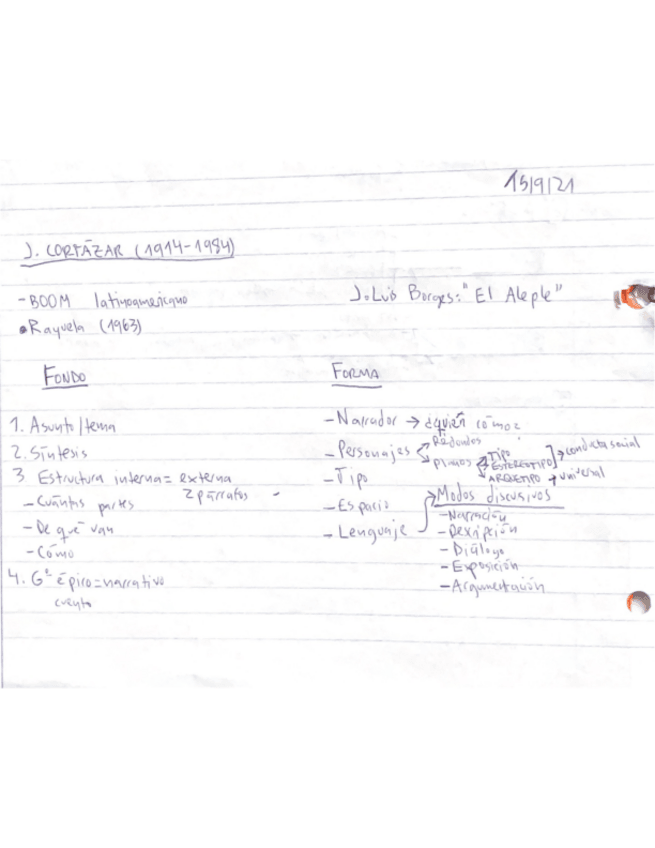 15/9/21
J. CORTÁZAR (1914-1984)
- BOOM latinoamericano
J. Luis Borges: "El Aleph"
• Rayuela (1963)
FONDO
FORMA
1. Asunto/tema
2. Síntesis
3 Estructura interna = externa
2 párrafos
- Cuántas partes
- De qué van
- Cómo
4. Gº épico = narrativo
cuento
- Narrador → ¿quién cómo?
- Personajes
Redondos
planos
TIPO
ESTEREOTIPO
→ conducta social
ARQUETIPO → universal
- Tipo
- Espacio
- Lenguaje
→ Modos discursivos
- Narración
- Descripción
- Diálogo
- Exposición
- Argumentación